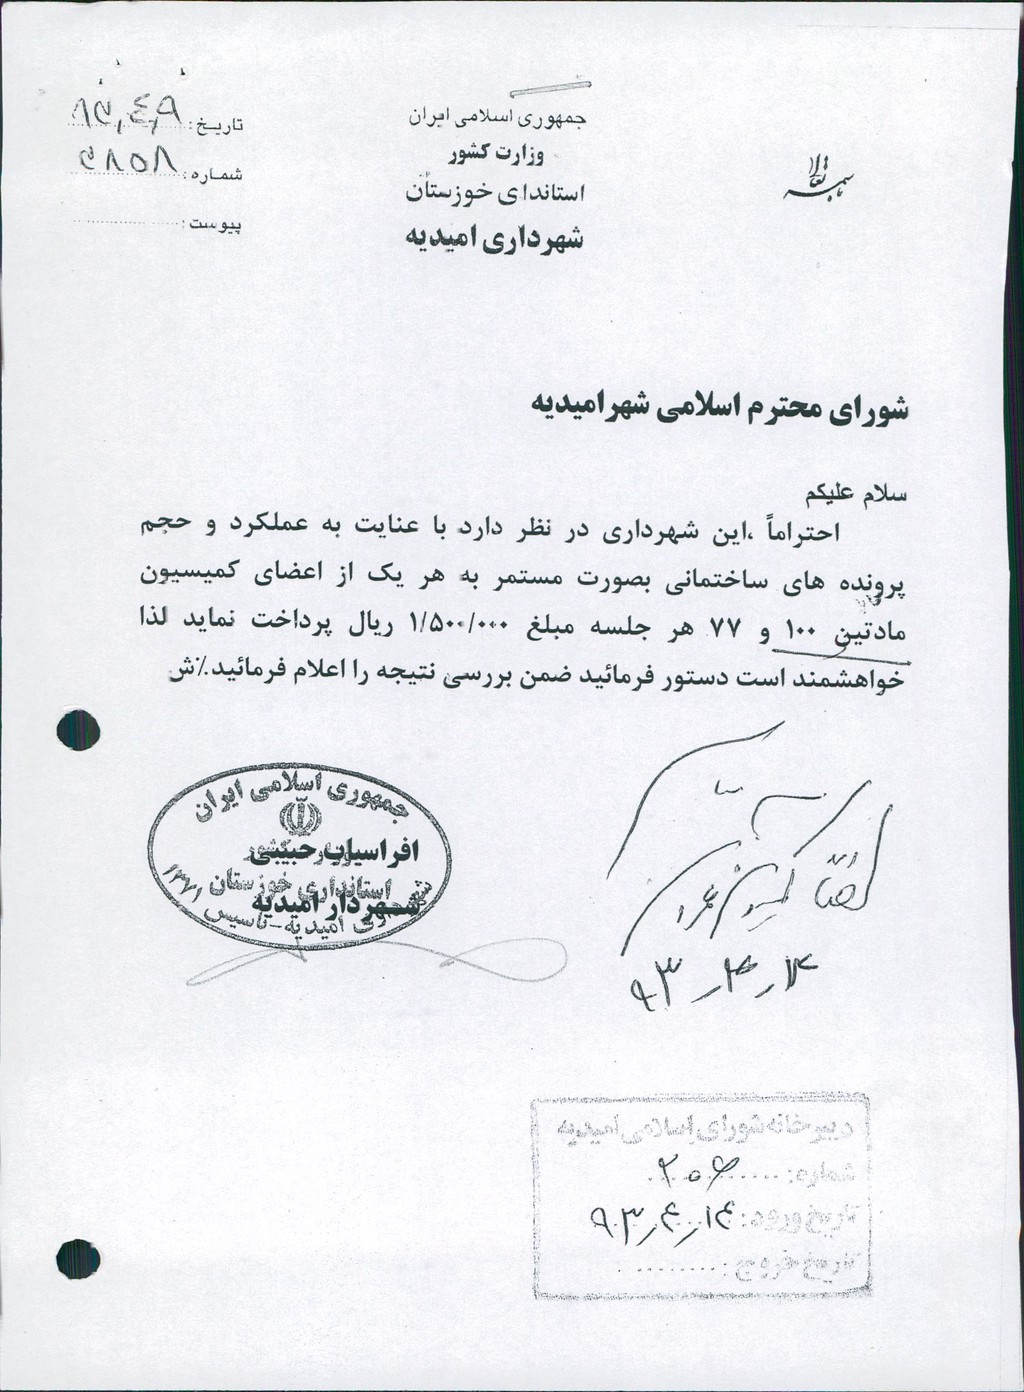 باسمه تعالی
جمهوری اسلامی ایران
وزارت کشور
استاندای خوزستان
شهرداری امیدیه
تاریخ:
شماره:
پیوست:
شورای محترم اسلامی شهرامیدیه
سلام علیکم
احتراماً ،این شهرداری در نظر دارد با عنایت به عملکرد و حجم
پرونده های ساختمانی بصورت مستمر به هر یک از اعضای کمیسیون
مادتین ۱۰۰ و ۷۷ هر جلسه مبلغ ۱/۵۰۰/۰۰۰ ریال پرداخت نماید لذا
خواهشمند است دستور فرمائید ضمن بررسی نتیجه را اعلام فرمائید./ش
جمهوری اسلامی ایران
افراسیاب حبیبی
استانداری خوزستان
شهردار امیدیه
امیدیه-تاسیس ۱۳۷۱
۹۳
دبیرخانه شورای اسلامی امیدیه
شماره:
تاریخ ورود: ۹۳/۴/۱۴
تاریخ خروج: